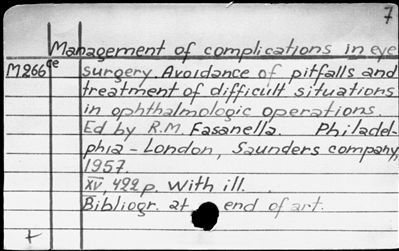 7
Management of complications in eye
M266 ae surgery. Avoidance of pitfalls and
treatment of difficult situations
in ophthalmologic operations.
Ed by R.M. Fasanella. Philadel-
phia - London, Saunders company,
1957.
XV, 422 p. With ill.
Bibliogr. at end of art.
+